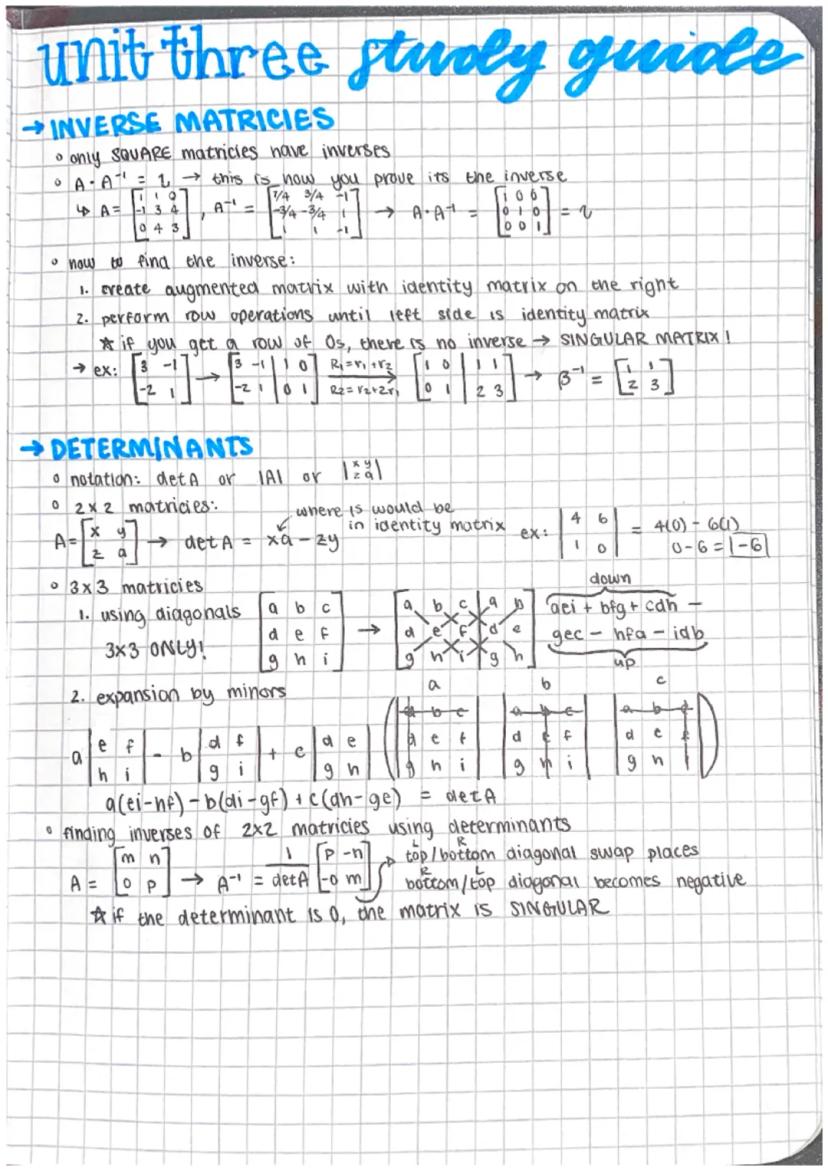 unit three study guide
→ INVERSE MATRICIES
∘ only SQUARE matricies have inverses
∘ A · A⁻¹ = I → this is how you prove its the inverse
↳ A = [1 1 0; -1 3 4; 0 4 3], A⁻¹ = [7/4 3/4 -1; -3/4 -3/4 1; 1 1 -1] → A · A⁻¹ = [1 0 0; 0 1 0; 0 0 1] = I
∘ how to find the inverse:
1. create augmented matrix with identity matrix on the right
2. perform row operations until left side is identity matrix
☆ if you get a row of 0s, there is no inverse → SINGULAR MATRIX!
→ ex: [3 -1; -2 1] → [3 -1 | 1 0; -2 1 | 0 1] R₁=r₁+r₂ R₂=r₂+2r₁ → [1 0 | 1 1; 0 1 | 2 3] → B⁻¹ = [1 1; 2 3]
→ DETERMINANTS
∘ notation: det A or |A| or |x y; z a|
∘ 2×2 matricies:
where 1s would be in identity matrix
A = [x y; z a] → det A = xa − zy
ex: |4 6; 1 0| = 4(0) - 6(1)
0-6 = -6
∘ 3×3 matricies
1. using diagonals
3×3 ONLY!
[a b c; d e f; g h i] → [a b c | a b; d e f | d e; g h i | g h]
down
aei + bfg + cdh −
gec − hfa − idb
up
2. expansion by minors
a b c
a |e f; h i| − b |d f; g i| + c |d e; g h| (|a b c; d e f; g h i| |a b c; d e f; g h i| |a b c; d e f; g h i|)
a(ei-hf) − b(di-gf) + c(dh-ge) = det A
∘ finding inverses of 2×2 matricies using determinants
A = [m n; o p] → A⁻¹ = 1/detA [p -n; -o m]
L R
top/bottom diagonal swap places
R L
bottom/top diagonal becomes negative
☆ if the determinant is 0, the matrix is SINGULAR